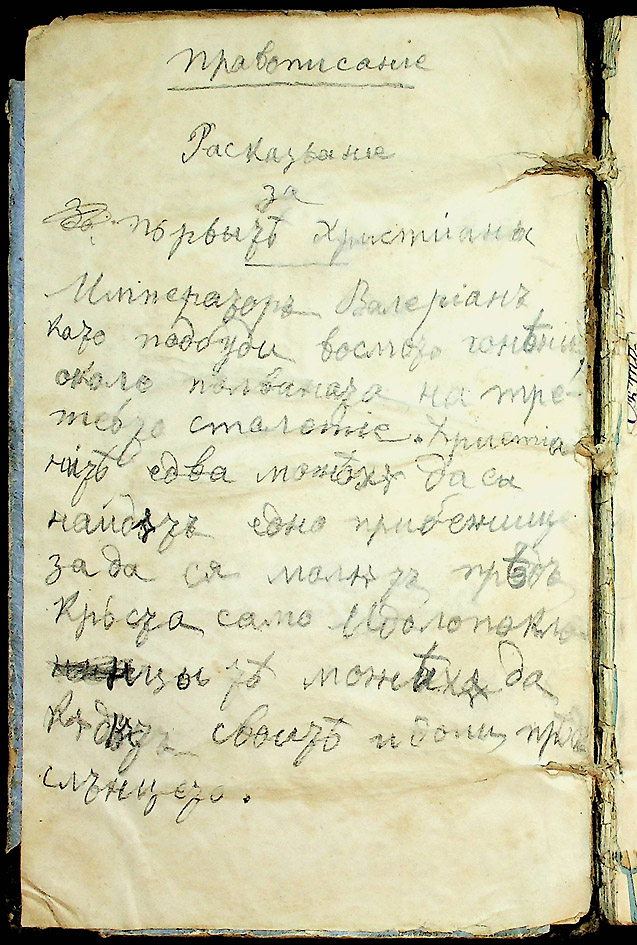 Правописаніе
Расказваніе
за
първытѣ Христіаны
Императоръ Валеріанъ
като подбуди восмото гонѣніе
около половината на тре-
тьото столетіе. Христіа
нітѣ едва можѣхѫ да си
найдѫтъ едно прибежище
за да ся молѭтъ прѣдъ
Кръста само Идолопокло
нницы тѣ можѣхѫ да
кѫдѭтъ своитѣ идоли прѣдъ
слънцето.